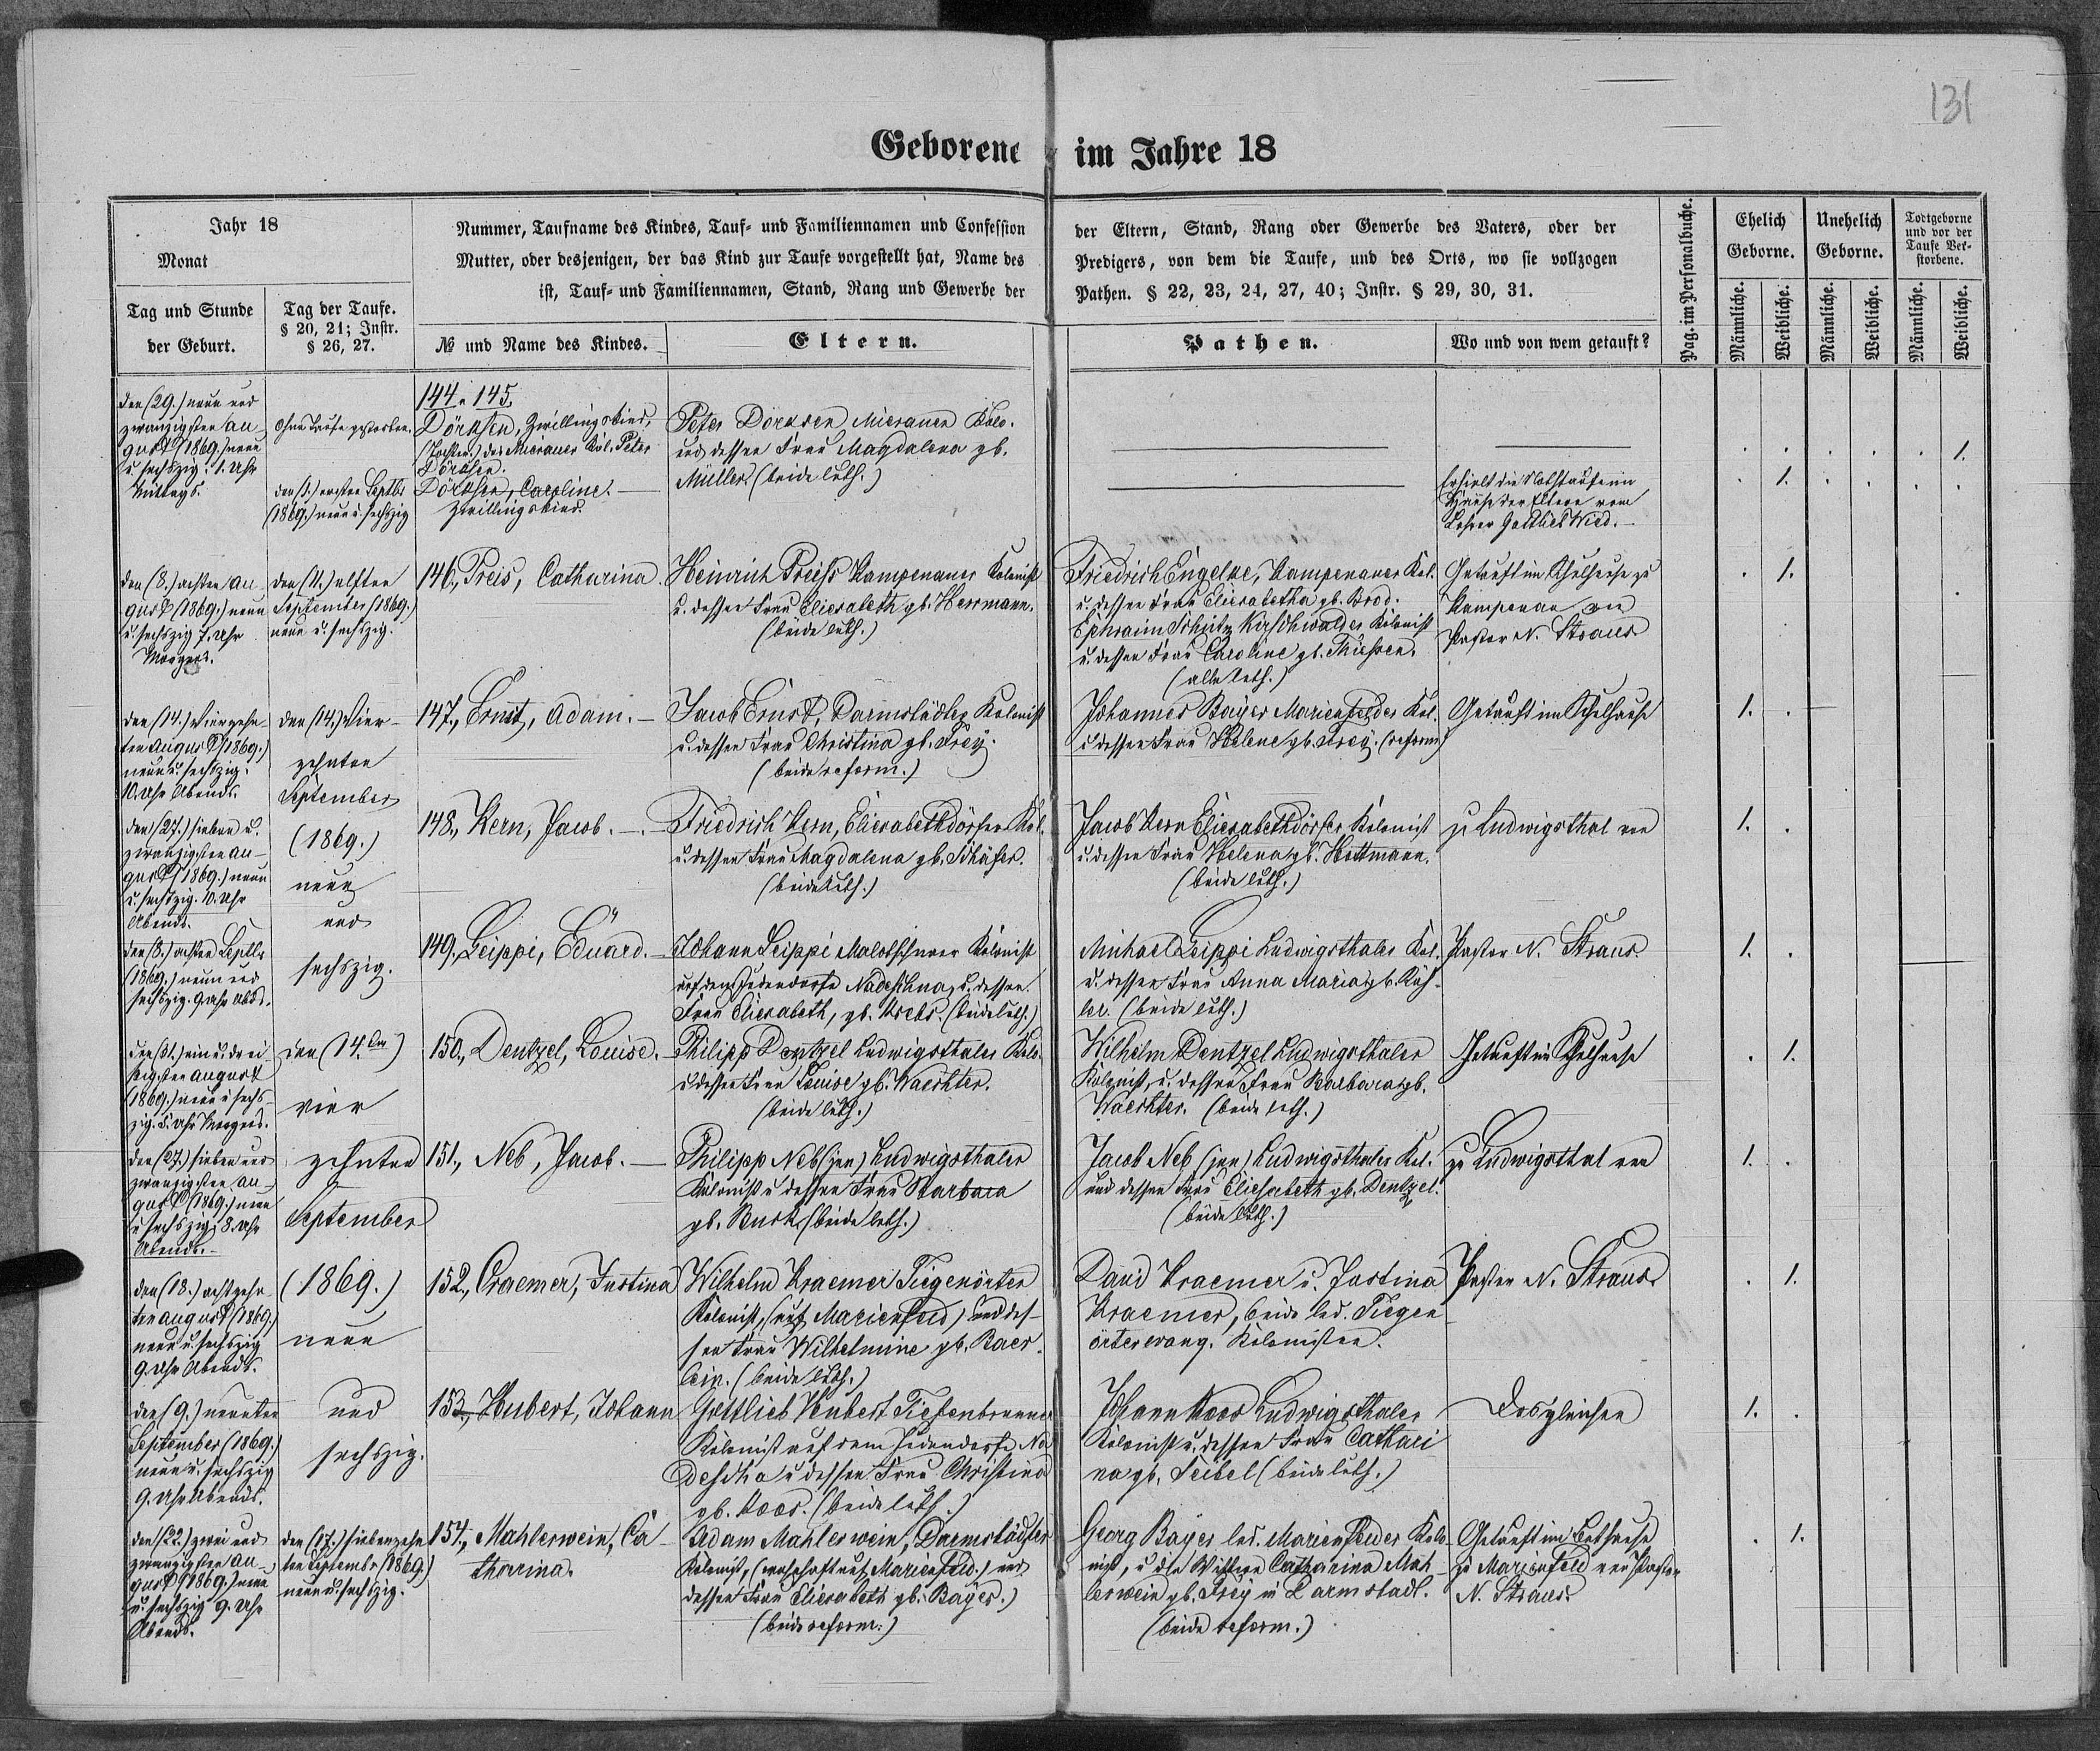 131
Geborene im Jahre 18
Jahr 18
Monat
Tag und Stunde
der Geburt.
Tag der Taufe.
§ 20, 21; Instr.
§ 26, 27.
Nummer, Taufname des Kindes, Tauf- und Familiennamen und Confession
Mutter, oder desjenigen, der das Kind zur Taufe vorgestellt hat, Name des
ist, Tauf- und Familiennamen, Stand, Rang und Gewerbe der
№ und Name des Kindes.
Eltern.
der Eltern, Stand, Rang oder Gewerbe des Vaters, oder der
Predigers, von dem die Taufe, und des Orts, wo sie vollzogen
Pathen. § 22, 23, 24, 27, 40; Instr. § 29, 30, 31.
Pathen.
Wo und von wem getauft?
Pag. im Personalbuche.
Ehelich
Geborne.
Unehelich
Geborne.
Todtgeborne
und vor der
Taufe Ver-
storbene.
Männliche.
Weibliche.
Männliche.
Weibliche.
Männliche.
Weibliche.
den (29.) neun und
zwanzigsten Au-
gust (1869.) neun
u. sechszig. 1. Uhr
Mittags.
ohne Taufe gestorben.
144 u 145.
Dörksen, Zwillingskind,
(Tochter) des Mierauer Kol. Peter
Dörksen.
Peter Dorksen Mierauer Kolo.
und dessen Frau Magdalena gb.
Müller. (beide luth.)
1.
den (1.) ersten Septbr
(1869.) neun u. sechszig
Dörksen, Caroline.
Zwillingskind.
Erhielt die Nothtaufe im
Hause der Eltern vom
Lehrer Gottlieb Wied.
1.
den (8.) achten Au-
gust (1869.) neun
u. sechszig 7. Uhr
Morgens.
den (11.) elften
September (1869.)
neun u. sechszig.
146., Preis, Catharina.
Heinrich Preiss Kampenauer Kolonist
u. dessen Frau Elisabeth gb. Herrmann.
(beide luth.)
Friedrich Engelke, Kampenauer Kol.
u. dessen Frau Elisabetha gb. Brod.
Ephraim Schütz Kirschwalder Kolonist
u. dessen Frau Caroline gb. Thiessen.
(alle luth.)
Getauft im Schulhause zu
Kampenau von
Pastor N. Straus
1.
den (14.) vierzehn-
ten August (1869.)
neun u. sechszig.
10. Uhr Abends.
den (14.) vier-
zehnten
September
(1869.)
neun
und
sechszig.
147., Ernst, Adam.
Jacob Ernst, Darmstädter Kolonist
u. dessen Frau Christina gb. Frey.
(beide reform.)
Johannes Bayer Marienfelder Kol.
u dessen Frau Helene gb. Frey. (reform.)
Getauft im Schulhause
1.
den (27.) sieben u.
zwanzigsten Au-
gust (1869.) neun
u. sechszig. 10. Uhr
Abends.
148., Kern, Jacob.
Friedrich Kern, Elisabethdörfer Kol.
u. dessen Frau Magdalena gb. Schäfer.
(beide luth.)
Jacob Kern Elisabethdörfer Kolonist
u. dessen Frau Helena gb. Hottmann.
(beide luth.)
zu Ludwigsthal von
1.
den (8.) achten Septbr
(1869.) neun und
sechszig. 9 Uhr Abds.
149. Leippi, Eduard.
Johann Leippi Molotschnaer Kolonist
auf dem Judendorfe Nadeschna, u. dessen
Frau Elisabeth, gb. Krebs. (beide luth.)
Michael Leippi Ludwigsthaler Kol.
u. dessen Frau Anna Maria gb. Küh-
ler. (beide luth.)
Pastor N. Straus.
1.
den (31.) ein u. drei
ßigsten August
(1869.) neun u sechs-
zig. 5. Uhr Morgens.
den (14.ten)
vier
zehnten
September
(1869.)
neun
und
sechszig.
150., Dentzel, Louise.
Philipp Dentzel Ludwigsthaler Kolo.
u dessen Frau Louise gb. Waechter.
(beide luth.)
Wilhelm Dentzel Ludwigsthaler
Kolonist, u. dessen Frau Barbara gb.
Waechter. (beide luth.)
Getauft im Schulhause
1.
den (27.) sieben und
zwanzigsten Au-
gust (1869.) neun
u sechszig 8. Uhr
Abends.
151., Neb, Jacob.
Philipp Neb (jun) Ludwigsthaler
Kolonist u dessen Frau Barbara
gb. Burk. (beide luth.)
Jacob Neb (jun) Ludwigsthaler Kol.
und dessen Frau Elisabeth gb. Dentzel.
(beide luth.)
zu Ludwigsthal von
1.
den (18.) achtzehn
ten August (1869.)
neun u. sechszig
9. Uhr Abends.
152., Craemer, Justina
Wilhelm Kraemer Tiegenörter
Kolonist, (auf Marienfeld) und des-
sen Frau Wilhelmine gb. Baer-
lein. (beide luth.)
David Kraemer u. Justina
Kraemer, beide led. Tiegen
örter evang. Kolonisten.
Pastor N. Straus.
1.
den (9.) neunten
September (1869.)
neun u. sechszig
9. Uhr Abends.
153., Hubert, Johann
Gottlieb Hubert Tiefenbrunner
Kolonist auf dem Judendorfe Na
deschda u dessen Frau Christina
gb. Koos. (beide luth.)
Johann Koos Ludwigsthaler
Kolonist u. dessen Frau Cathari
na gb. Seibel (beide luth.)
Desgleichen
1.
den (22.) zwei und
zwanzigsten Au-
gust (1869.) neun
u. sechszig 9. Uhr
Abends.
den (17.) siebenzehn
ten September (1869.)
neun u. sechszig.
154., Mahlerwein, Ca-
tharina.
Adam Mahlerwein, Darmstädter
Kolonist, (wohnhaft auf Marienfeld.) und
dessen Frau Elisabeth gb. Bayer.)
(beide reform.)
Georg Bayer led. Marienfelder Kolo-
nist, u die Wittwe Catharina Mah-
lerwein gb. Frey in Darmstadt.
(beide reform.)
Getauft im Bethause
zu Marienfeld von Pastor
N. Straus.
1.